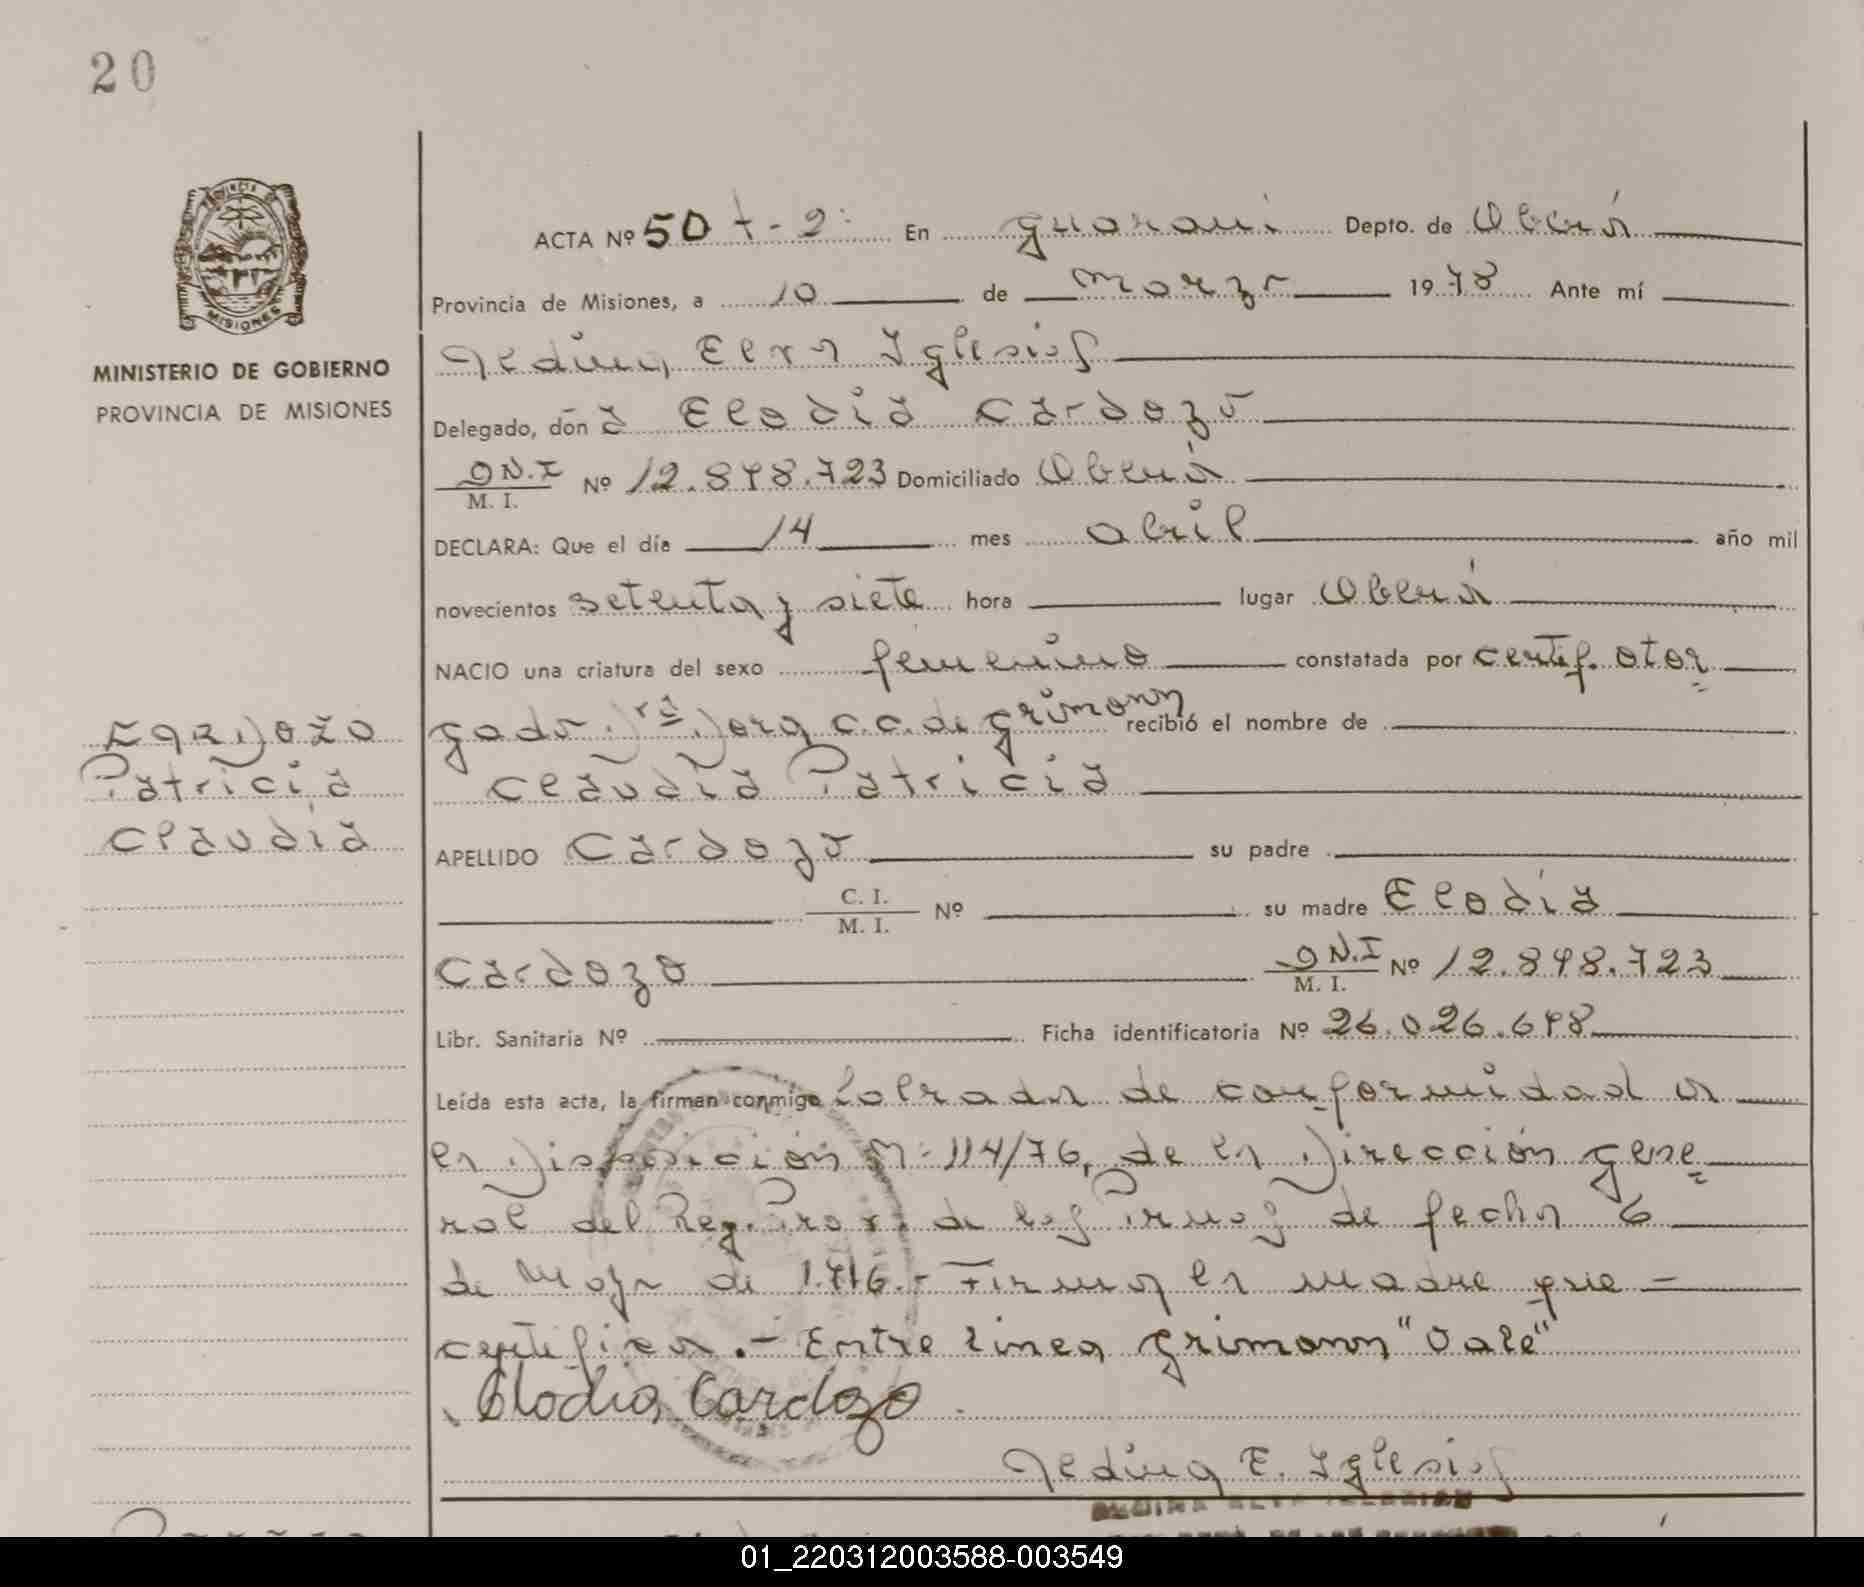 20
PROVINCIA DE
MISIONES
MINISTERIO DE GOBIERNO
PROVINCIA DE MISIONES
ACTA Nº 50 t-2: En Guarani Depto. de Oberá
Provincia de Misiones, a 10 de Marzo 1978 Ante mí
Nedina Elsa Iglesias
Delegado, doña Elodia Cardozo
D N.I M. I. Nº 12.848.723 Domiciliado Oberá
DECLARA: Que el día 14 mes abril año mil
novecientos setenta y siete hora lugar Oberá
NACIO una criatura del sexo femenino constatada por certif. otor
gado Dra Dora C.C. de Grimann recibió el nombre de
Claudia Patricia
CARDOZO
Patricia
Claudia
APELLIDO Cardozo su padre
C. I. M. I. Nº su madre Elodia
Cardozo D N.I M. I. Nº 12.848.723
Libr. Sanitaria Nº Ficha identificatoria Nº 26.026.648
Leída esta acta, la firman conmigo Labrada de conformidad a
la Disposición Nº 114/76, de la Dirección gene
ral del Reg. Prov. de las Prnas de fecha 6
de Mayo de 1.976.- Firma la madre que
certifica.- Entre linea Grimann "Vale"
Elodia Cardozo
Nedina E. Iglesias
01_220312003588-003549